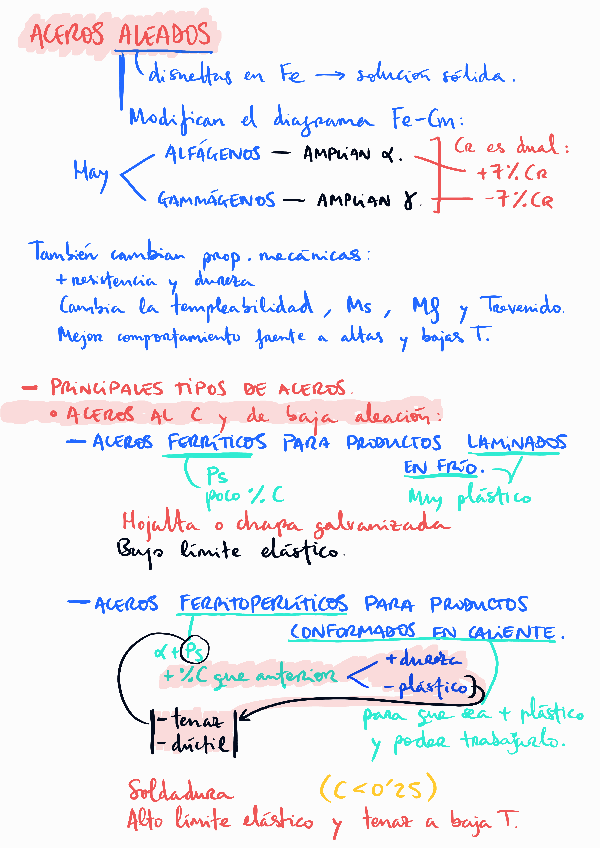 ACEROS ALEADOS
disueltas en Fe → solución sólida.
Modifican el diagrama Fe-Cm:
May
ALFÁGENOS — AMPLIAN α.
GAMMÁGENOS — AMPLIAN γ.
CR es dual:
+7% CR
-7% CR
También cambian prop. mecánicas:
+ resistencia y dureza
Cambia la templeabilidad, Ms, Mf y Trevenido.
Mejor comportamiento frente a altas y bajas T.
— PRINCIPALES TIPOS DE ACEROS.
• ACEROS AL C y de baja aleación:
— ACEROS FERRÍTICOS PARA PRODUCTOS LAMINADOS
EN FRÍO.
Ps
poco % C
Muy plástico
Hojalta o chapa galvanizada
Bajo límite elástico.
— ACEROS FERRITOPERLÍTICOS PARA PRODUCTOS
CONFORMADOS EN CALIENTE.
α + Ps
+ %C que anterior
+ dureza
- plástico
- tenaz
- dúctil
para que sea + plástico
y poder trabajarlo.
Soldadura (C < 0'25)
Alto límite elástico y tenaz a baja T.